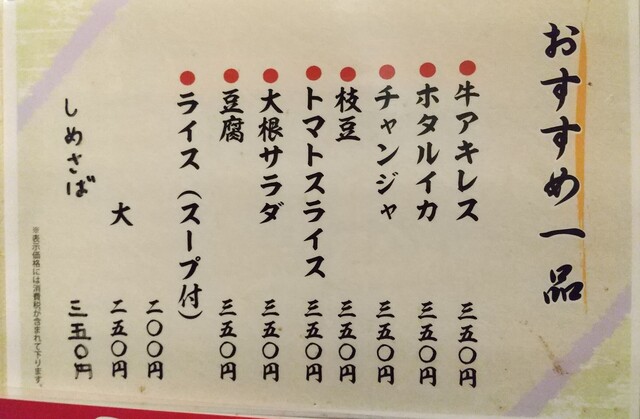 おすすめ一品
●牛アキレス 三五〇円
●ホタルイカ 三五〇円
●チャンジャ 三五〇円
●枝豆 三五〇円
●トマトスライス 三五〇円
●大根サラダ 三五〇円
●豆腐 三五〇円
●ライス(スープ付) 二〇〇円
大 二五〇円
しめさば 三五〇円
※表示価格には消費税が含まれて下ります。